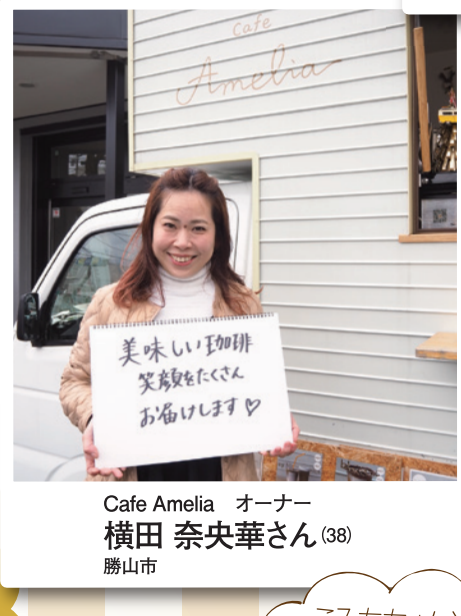 Cafe
Amelia
美味しい珈琲
笑顔をたくさん
お届けします♡
Cafe Amelia　オーナー
横田 奈央華さん(38)
勝山市